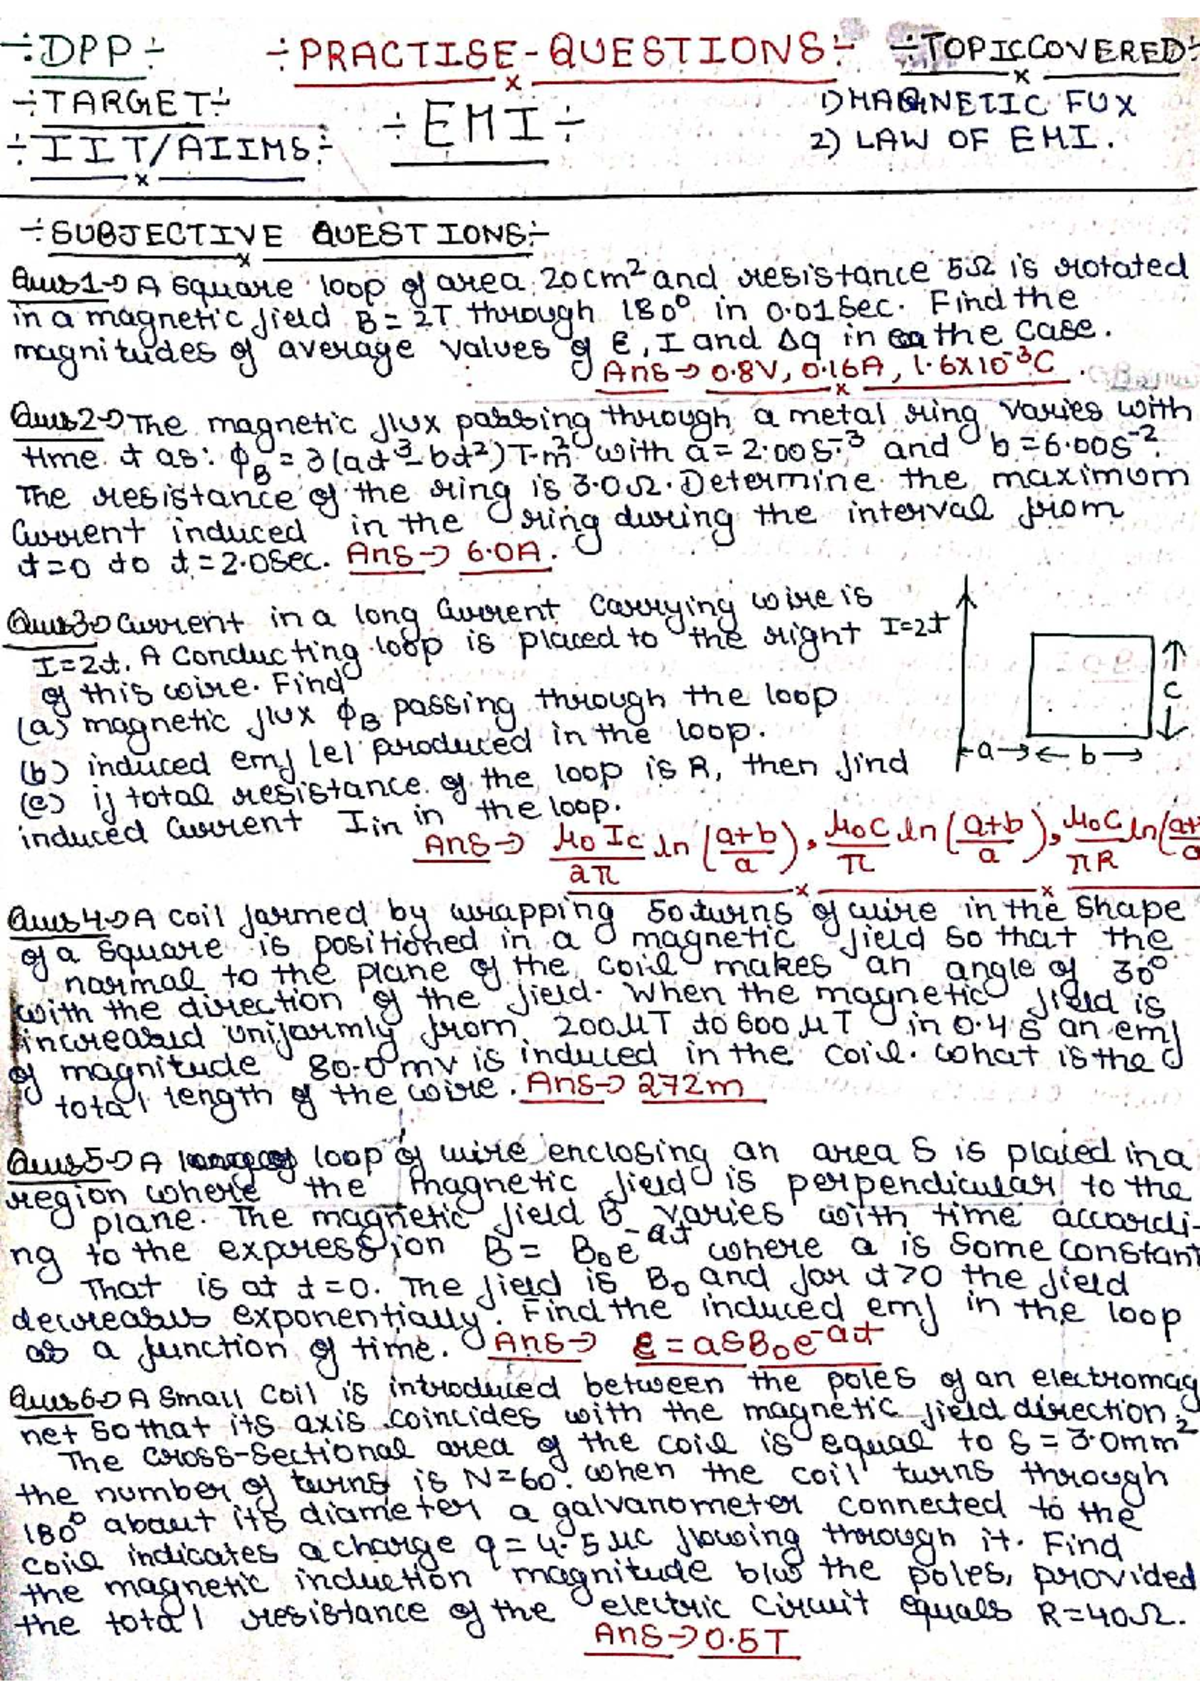 ÷DPP÷ ÷PRACTISE-QUESTIONS÷ ÷TOPIC COVERED÷
÷TARGET÷ ÷EMI÷ 1) MAGNETIC FUX
÷IIT/AIIMS÷ 2) LAW OF EMI.
÷SUBJECTIVE QUESTIONS÷
Ques1→ A square loop of area 20cm² and resistance 5Ω is rotated
in a magnetic field B = 2T through 180° in 0.01sec. Find the
magnitudes of average values of ε, I and Δq in the case.
Ans → 0.8V, 0.16A, 1.6X10⁻³C
Ques2→ The magnetic flux passing through a metal ring varies with
time t as: ϕB = 3(at³-bt²)T-m² with a = 2.00s⁻³ and b = 6.00s⁻².
The resistance of the ring is 3.0Ω. Determine the maximum
current induced in the ring during the interval from
t=0 to t=2.0sec. Ans → 6.0A.
Ques3→ Current in a long current carrying wire is
I=2t. A conducting loop is placed to the right I=2t
of this wire. Find
(a) magnetic flux ϕB passing through the loop
(b) induced emf |e| produced in the loop.
(c) if total resistance of the loop is R, then find
induced current Iin in the loop.
c
a b
Ans → μ₀Ic/2π ln(a+b/a), μ₀c/π ln(a+b/a), μ₀c/πR ln(a+
Ques4→ A coil formed by wrapping 50 turns of wire in the shape
of a square is positioned in a magnetic field so that the
normal to the plane of the coil makes an angle of 30°
with the direction of the field. When the magnetic field is
increased uniformly from 200μT to 600μT in 0.4s an emf
of magnitude 80.0mv is induced in the coil. what is the
total length of the wire. Ans → 272m
Ques5→ A loop of wire enclosing an area S is placed in a
region where the magnetic field is perpendicular to the
plane. The magnetic field B varies with time accordi-
ng to the expression B = B₀e⁻ᵃᵗ where a is some constant
That is at t=0. The field is B₀ and for t>0 the field
decreases exponentially. Find the induced emf in the loop
as a function of time. Ans → ε = aSB₀e⁻ᵃᵗ
Ques6→ A small coil is introduced between the poles of an electromag
net so that its axis coincides with the magnetic field direction.
The cross-sectional area of the coil is equal to S = 3.0mm²
the number of turns is N=60. when the coil turns through
180° about its diameter a galvanometer connected to the
coil indicates a charge q = 4.5μc flowing through it. Find
the magnetic induction magnitude b/w the poles, provided
the total resistance of the electric circuit equals R=40Ω.
Ans → 0.5T